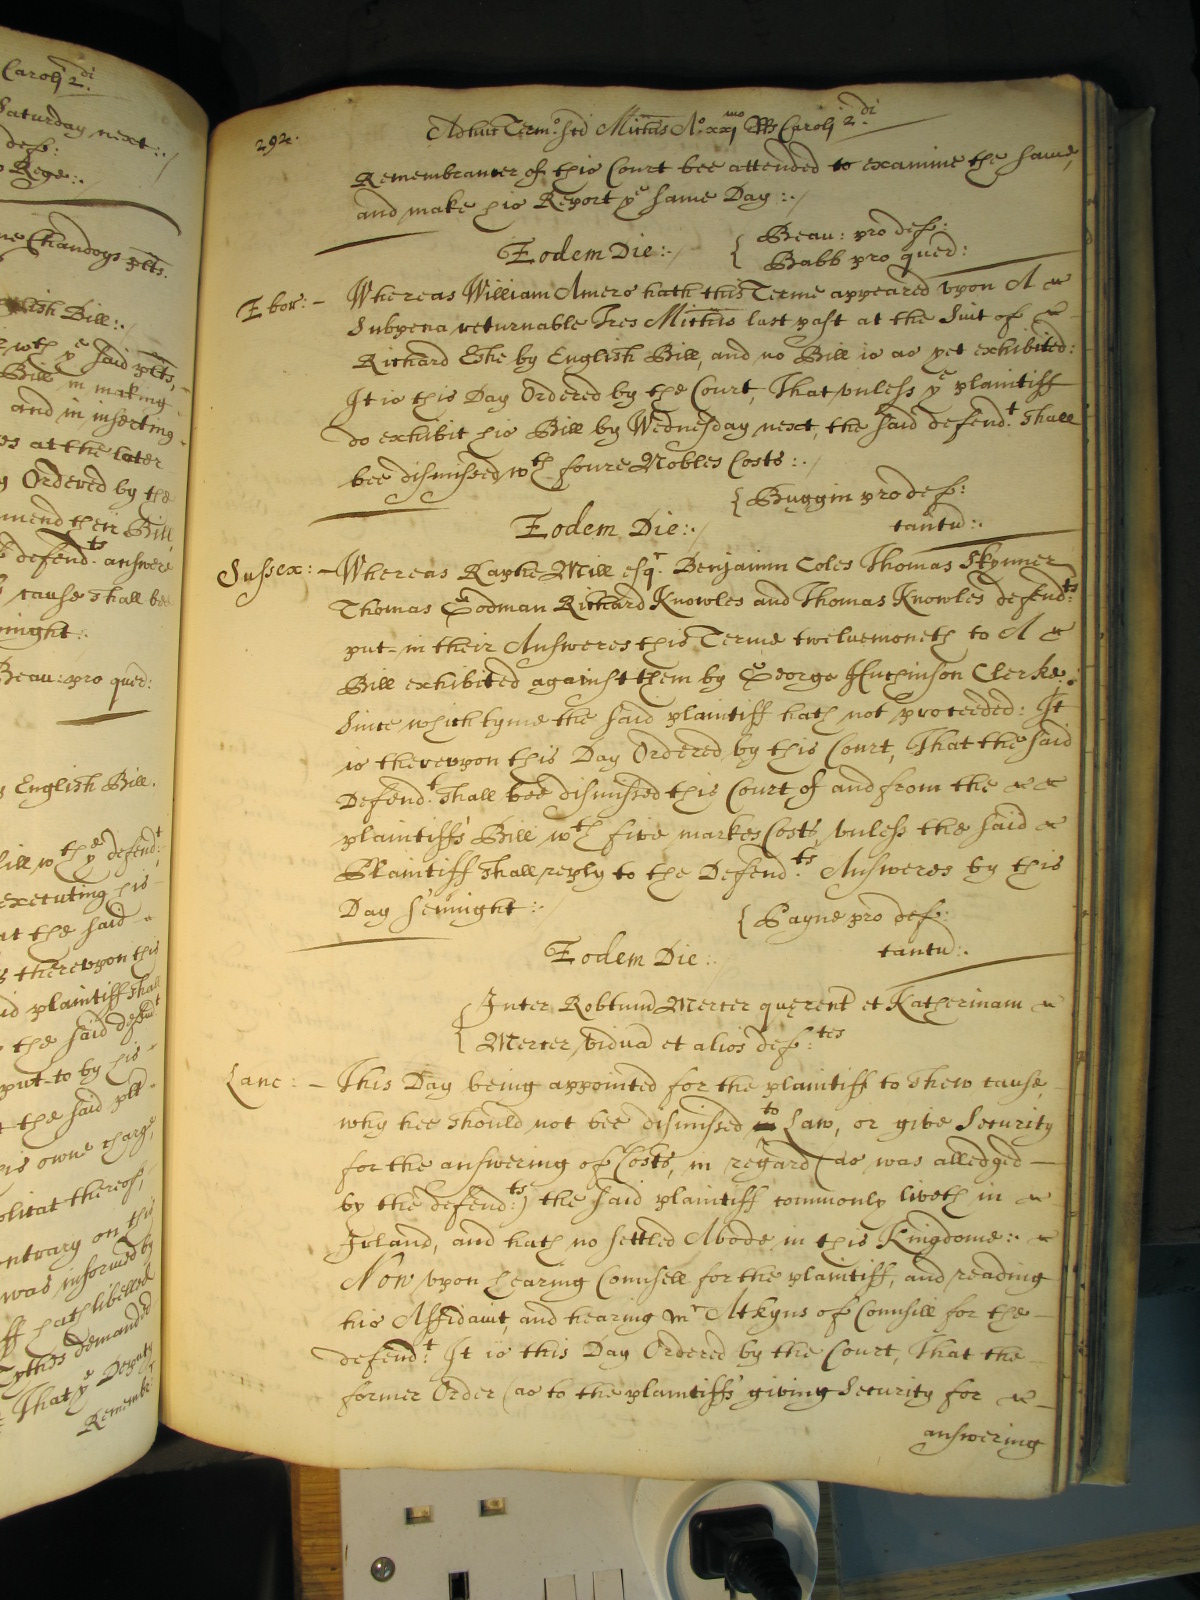 Caroli 2.di
Saturday next:./
def:
Rege:./
Chandoys plts.
lish Bill:./
wth ye said plts,
Bill in making
and in inserting
at the later
Ordered by the
mend their Bill
defend:ts answere
cause shall bee
night:.
Beau: pro quer:
English Bill.
Bill wth ye defend:t
executing his
at the said
thereupon this
plaintiff shall
the said defend:t
put to by his
the said plt
his owne charge,
thereof,
contrary on this
was informed by
hath libelled
Tythes demanded
That ye Deputy
Rememb:r
292.
Adhuc Term:o Sci Michis Ao. xxjmo RRs Caroli 2.di
Remembrancer of this Court bee attended to examine the same,
and make his Report ye same Day:./
Eodem Die:./ { Beau: pro def:
Babb pro quer:
Ebor: - Whereas William Amers hath this Terme appeared vpon A
Subpena returnable Tres Michis last past at the Suit of
Richard Eshe by English Bill, and no Bill is as yet exhibited:
It is this Day Ordered by the Court, That vnless ye plaintiff
do exhibit his Bill by Wednesday next, the said defend:t shall
bee dismissed wth foure Nobles Costs:./
{ Buggin pro def:
Eodem Die:./ tantu:.
Sussex: - Whereas Raphe Mill esqr. Benjamin Coles Thomas Skynner
Thomas Godman Richard Knowles and Thomas Knowles defend:ts
put in their Answeres this Terme twelvemoneth to A
Bill exhibited against them by George Hutchinson Clerke:
Since which tyme the said plaintiff hath not proceeded: It
is therevpon this Day Ordered by this Court, That the said
Defend:t shall bee dismissed this Court of and from the
plaintiffs Bill wth five markes Costs, vnless the said
Plaintiff shall reply to the Defend:ts Answeres by this
Day Sevnight:.
{ Payne pro def:
Eodem Die:. tantu:.
{ Inter Robtum Mercer querent et Katherinam
Mercer vidua et alios def:tes
Lanc: - This Day being appointed for the plaintiff to shew cause,
why hee should not bee dismissed to Law, or give Security
for the answering of Costs, in regard (as was alledged
by the defend:ts) the said plaintiff commonly liveth in
Irland, and hath no settled Abode in this Kingdome:.
Now vpon hearing Counsell for the plaintiff, and reading
his Affidavit, and hearing mr Atkyns of Counsell for the
defend:t It is this Day Ordered by the Court, That the
former Order (as to the plaintiffs giving Security for
answering